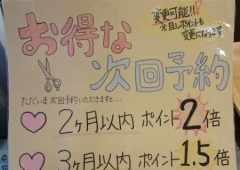 お得な
変更可能!!
※但しポイントも
変更になります
次回予約
ただいま次回予約いただきますと…
2ヶ月以内 ポイント2倍
3ヶ月以内 ポイント1.5倍